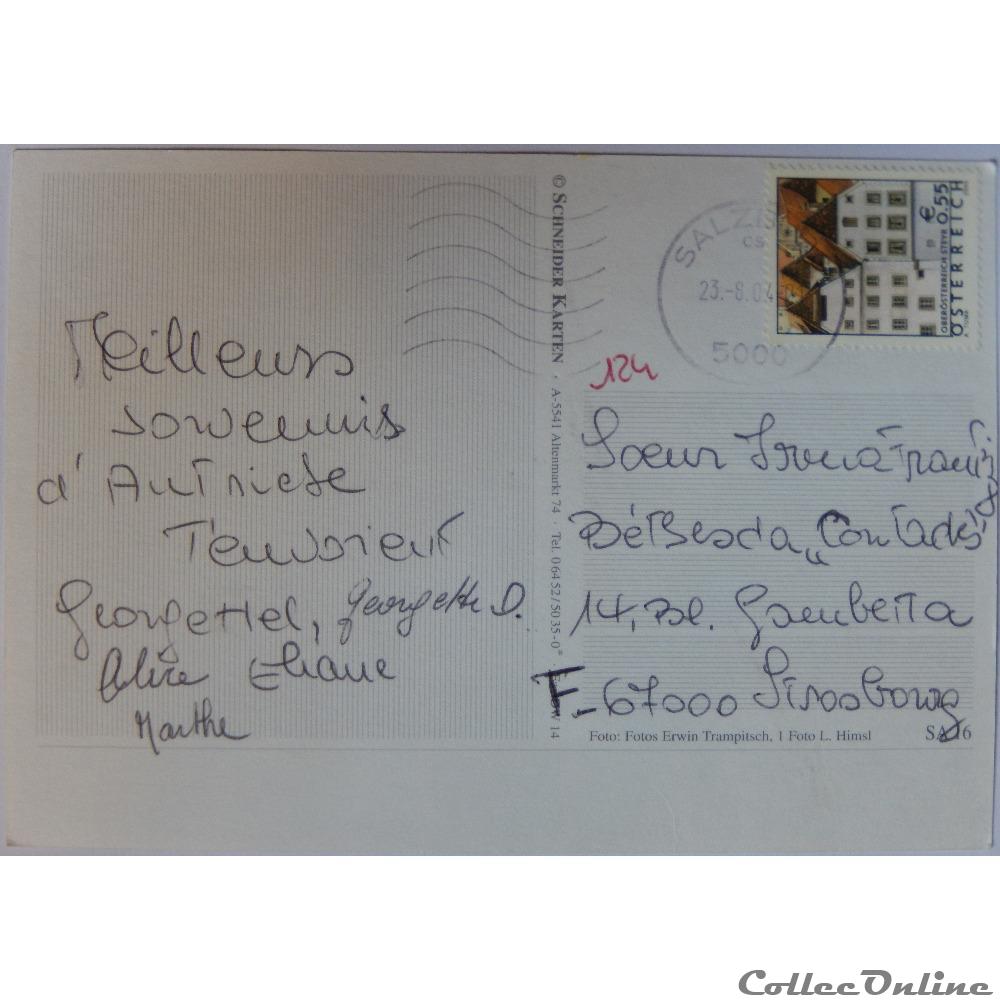 Meilleurs
souvenirs
d'Autriche
Georgettel, Georgette D.
Alice Eliane
Marthe
© SCHNEIDER KARTEN · A-5541 Altenmarkt 74 · Tel. 06452/5035-0
/14
SALZ
23.-8.04
5000
€ 0.55
OBERÖSTERREICH STEYR
ÖSTERREICH
124
Soeur
Béthesda "Contades"
14, Bl. Gambetta
F-67000 Strasbourg
Foto: Fotos Erwin Trampitsch, 1 Foto L. Himsl
CollecOnline